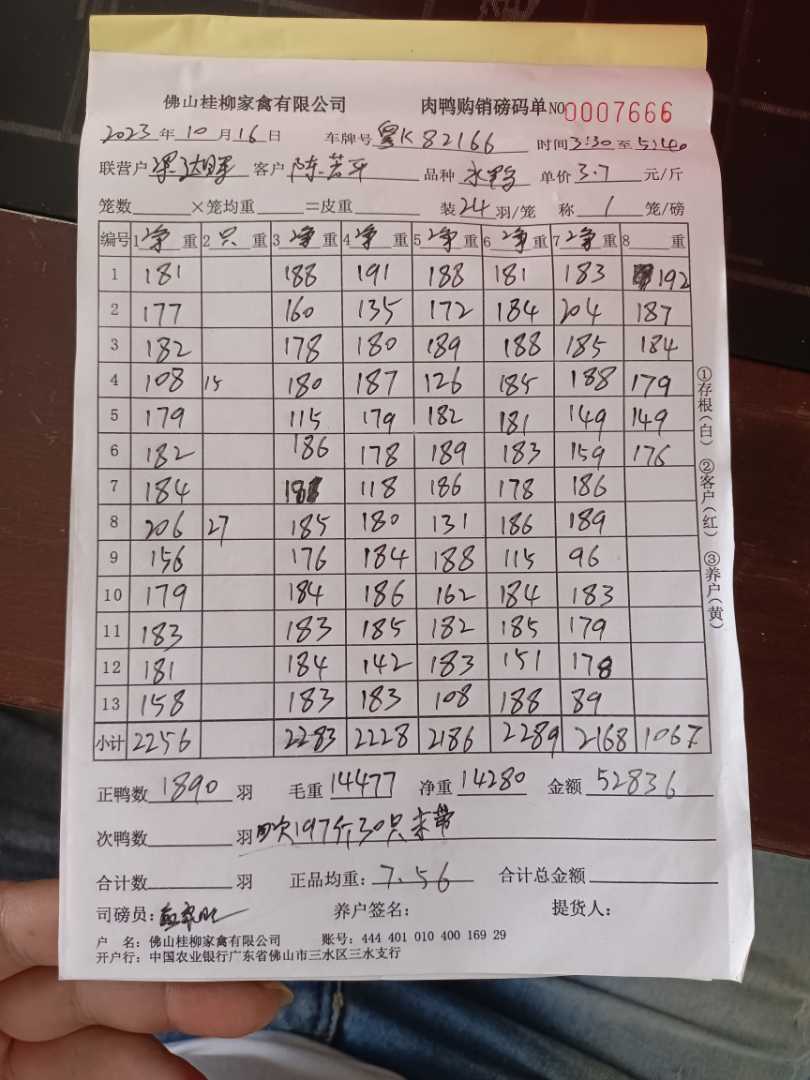 佛山桂柳家禽有限公司 肉鸭购销磅码单 NO 0007666
2023年10月16日 车牌号 K82166 时间3:30至5:40
联营户 客户 陈若平 品种 水鸭 单价 3.7 元/斤
笼数 ×笼均重 =皮重 装24羽/笼 称 1 笼/磅
编号 1净重 2只重 3净重 4净重 5净重 6净重 7净重 8 重
1 181 188 191 188 181 183 192
2 177 160 135 172 184 204 187
3 182 178 180 189 188 185 184
4 108 15 180 187 126 185 188 179
5 179 115 179 182 181 149 149
6 182 186 178 189 183 159 176
7 184 118 186 178 186
8 206 27 185 180 131 186 189
9 156 176 184 188 115 96
10 179 184 186 162 184 183
11 183 183 185 182 185 179
12 181 184 142 183 151 178
13 158 183 183 108 188 89
小计 2256 2283 2228 2186 2289 2168 1067
正鸭数 1890 羽 毛重 14477 净重 14280 金额 52836
次鸭数 羽 197斤30只未带
合计数 羽 正品均重: 7.56 合计总金额
司磅员: 养户签名: 提货人:
户 名: 佛山桂柳家禽有限公司 账号: 444 401 010 400 169 29
开户行: 中国农业银行广东省佛山市三水区三水支行
①存根(白) ②客户(红) ③养户(黄)